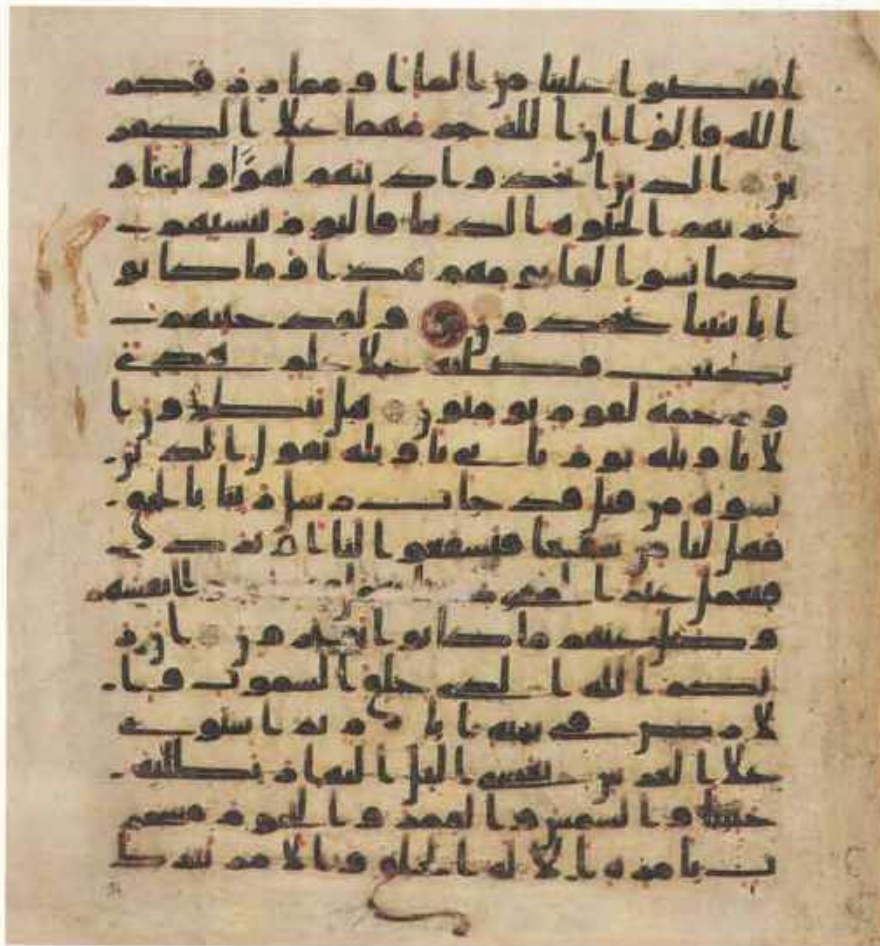 افيضوا علينا من الما او مما رزقكم
الله قالوا ان الله حرمهما علا الكفر
ين الذين اتخذوا دينهم لهوا ولعبا و
غرتهم الحيوه الدنيا فاليوم ننسيهم
كما نسوا لقا يومهم هذا وما كانو
ا بايتنا يجحدون ولقد جينهم
بكتب فصلنه علا علم هدى
ورحمة لقوم يومنون هل ينظرون ا
لا تاويله يوم ياتي تاويله يقول الذين
نسوه من قبل قد جات رسل ربنا بالحق
فهل لنا من شفعا فيشفعوا لنا او نرد
فنعمل غير الذي انفسهم
وضل عنهم ما كانوا يفترون ان ر
بكم الله الذي خلق السموت وا
لارض في ستة ايام ثم استوى
علا العرش يغشي اليل النهار يطلبه
حثيثا والشمس والقمر والنجوم مسخر
ت بامره الا له الخلق والامر تبرك